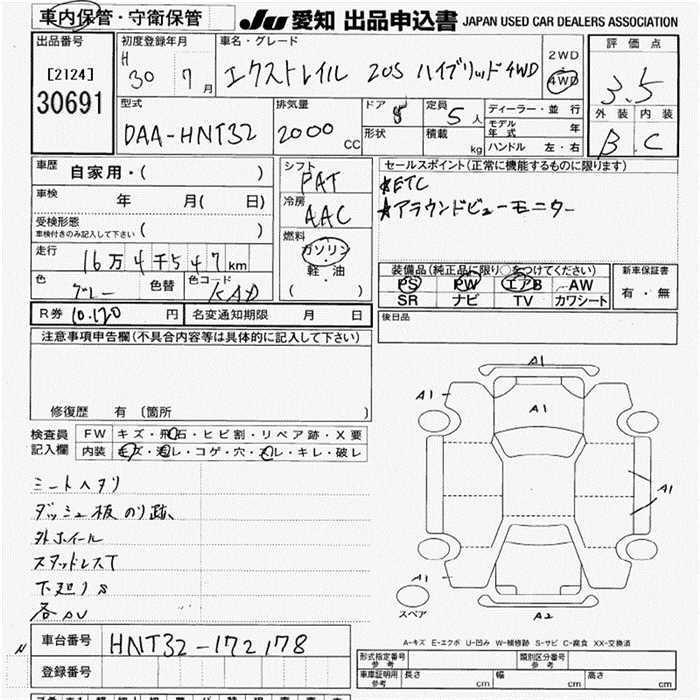 車内保管・守衛保管
JU 愛知 出品申込書 JAPAN USED CAR DEALERS ASSOCIATION
出品番号
[2124]
30691
初度登録年月
H 30 7月
車名・グレード
エクストレイル 20S ハイブリッド4WD
2WD
4WD
評価点
3.5
外装 内装
B C
型式
DAA-HNT32
排気量
2000 CC
ドア
形状
定員
5人
積載
kg
ディーラー・並行
モデル年式 年
ハンドル 左・右
車歴
自家用・( )
車検
年 月( 日)
受検形態
車検付きのみ記入して下さい ( )
走行
16万4千547km
色
グレー
色替
色コード
KAD
シフト
FAT
冷房
AAC
燃料
ガソリン
・
軽・油
( )
セールスポイント(正常に機能するものに限ります)
★ETC
★アラウンドビューモニター
装備品(純正品に限り○をつけてください)
PS PW エアB AW
SR ナビ TV カワシート
新車保証書
有・無
後日品
R券 10.120 円 名変通知期限 月 日
注意事項申告欄(不具合内容等は具体的に記入して下さい)
修復歴 有 (箇所 )
検査員
記入欄
FW キズ・飛石・ヒビ割・リペア跡・X要
内装 キズ・汚レ・コゲ・穴・スレ・キレ・破レ
シートヘタリ
ダッシュ板のり跡、
外ホイール
スタッドレスT
下廻りS
各AU
A1
A1
A1
A1
A1
A2
スペア
A-キズ E-エクボ U-凹み W-補修跡 S-サビ C-腐食 XX-交換済
車台番号 HNT32-172178
登録番号
形式指定番号
参考
類別区分番号
参考
車庫証明用
参考
長さ cm 幅 cm 高さ cm